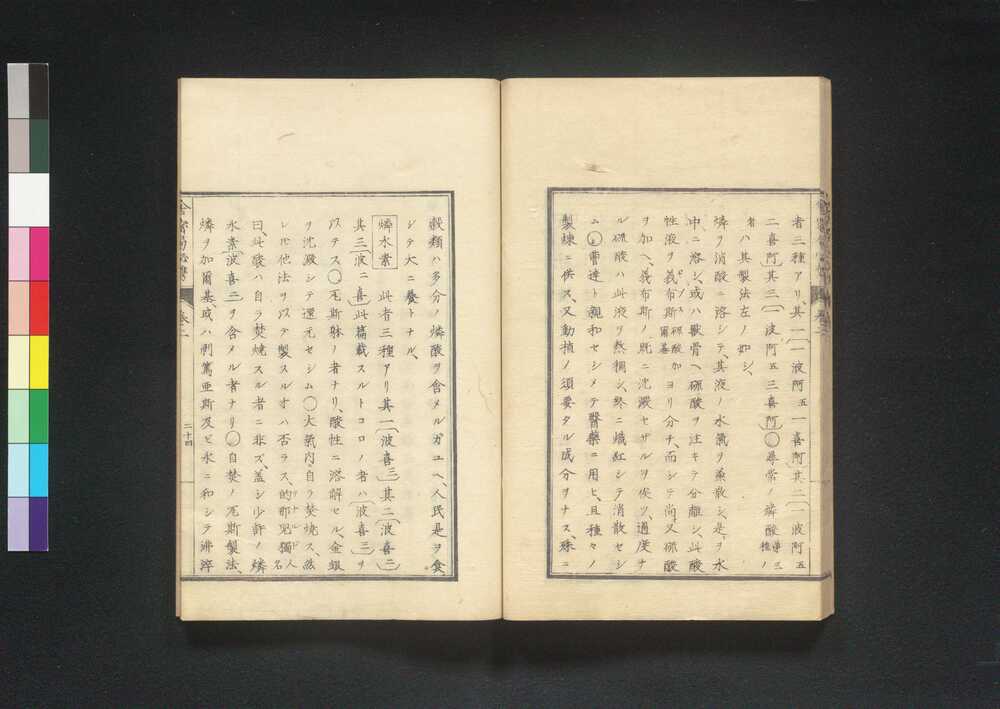 者三種アリ、其一(一波阿五一喜阿)其二(一波阿五
二喜阿其三(一波阿五三喜阿)〇尋常ノ燐酸第三種ノ
者ハ其製法左ノ如シ、
燐ヲ消酸ニ溶シテ、其液ノ水氣ヲ蒸散シ、是ヲ水
中ニ溶シ、或ハ獸骨ヘ硫酸ヲ注キテ分離シ、此酸
性液ヲ義布斯硫酸加爾基ヨリ分チ、而シテ尚又硫酸
ヲ加ヘ、義布斯ノ既ニ沈澱セザルヲ俟ツ、過度ナ
ル硫酸ハ此液ヲ熱稠シ、終ニ熾紅シテ消散セシ
ム〇曹達ト親和セシメテ醫藥ニ用ヒ、且種々ノ
製煉ニ供ス、又動植ノ須要タル成分ヲナス、殊ニ
穀類ハ多分ノ燐酸ヲ含メルガユヘ、人民是ヲ食
シテ大ニ養トナル、
燐水素 此者三種アリ其一(波喜三其二(波喜二
其三(波ニ喜)此篇載スルトコロノ者ハ(波喜三)ヲ
以テス〇瓦斯躰ノ者ナリ、酸性ニ溶解セル、金銀
ヲ沈澱シテ還元セシム〇大氣内自ラ焚焼ス、然
レ圧他法ヲ以テ製スルオハ否ラス、的那児獨人名
曰、此酸ハ自ラ焚焼スル者ニ非ズ、蓋シ少許ノ燐
水素(波喜二ヲ含メル者ナリ〇自焚ノ瓦斯製法、
燐ヲ加爾基、或ハ剥篤亜斯及ビ水ニ和シテ沸淬
二十四